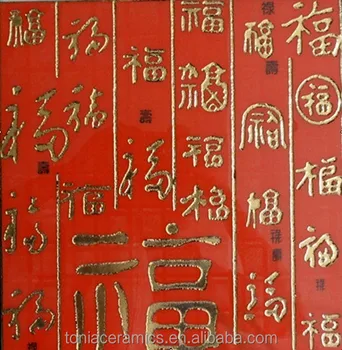 福福福福福
祿福福福祿壽福
福福福福
福壽福
福福福
福福壽福福
福
toniaceramics.en.alibaba.com